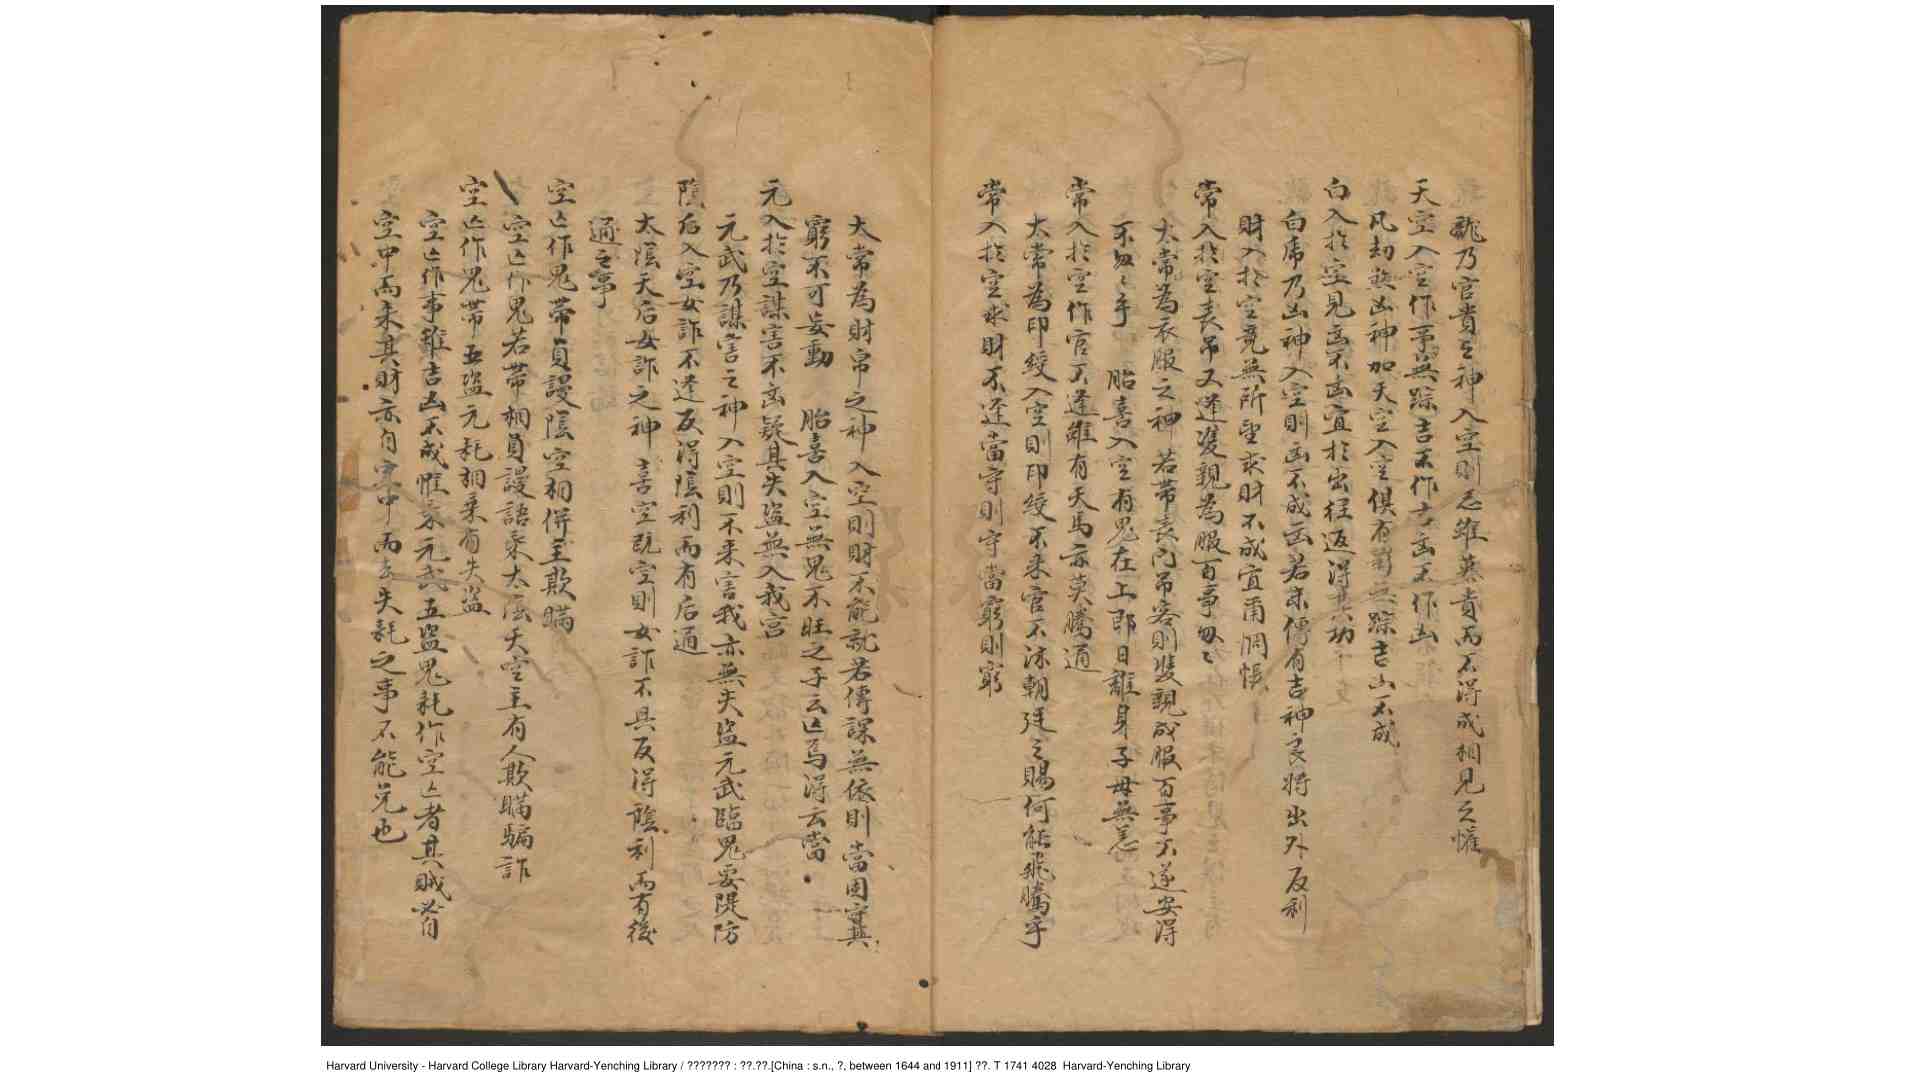 龍乃官貴之神入空則忌雖慕貴而不得成相見之懽
天空入空作事無踪吉不作吉凶不作凶
凡劫煞凶神加天空入空俱有影無踪吉凶不成
白入於空見凶不凶宜於出徑返得其功
白虎乃凶神入空則凶不成凶若末傳有吉神良將出外反利
財入於空竟無所望求財不成宜甭惆悵
常入於空喪吊又逢雙親為服百事匆々
太常為衣服之神若帶喪門吊客則雙親成服百事不遂安得
不匆々乎 胎喜入空有鬼在上即日離身子母無恙
常入於空作官不逢雖有天馬亦莫騰通
太常為印綬入空則印綬不来官不沐朝廷之賜何能飛騰乎
常入於空求財不逢當守則守當窮則窮
太常為財帛之神入空則財不能就若傳課無依則當固守其
窮不可妄動 胎喜入空無鬼不旺之子云亡焉得云當
元入於空謀害不凶疑其失盜無入我宮
元武乃謀害之神入空則不来害我亦無失盜元武臨鬼要隄防
陰后入空女詐不逢反得陰利而有后通
太陰天后女詐之神喜空既空則女詐不具反得陰利而有後
通之事
空亡作鬼帶員謾陰空相併主欺瞞
空亡作鬼若帶相員謾語乘太陰天空主有人欺瞞騙詐
空亡作鬼帶五盜元耗相乗有失盜
空亡作事雖吉凶不成惟乘元武五盜鬼耗作空亡者其賊必自
空中而来其財亦自空中而去失耗之事不能免也
Harvard University - Harvard College Library Harvard-Yenching Library / ??????? : ??.??.[China : s.n., ?, between 1644 and 1911] ??. T 1741 4028 Harvard-Yenching Library